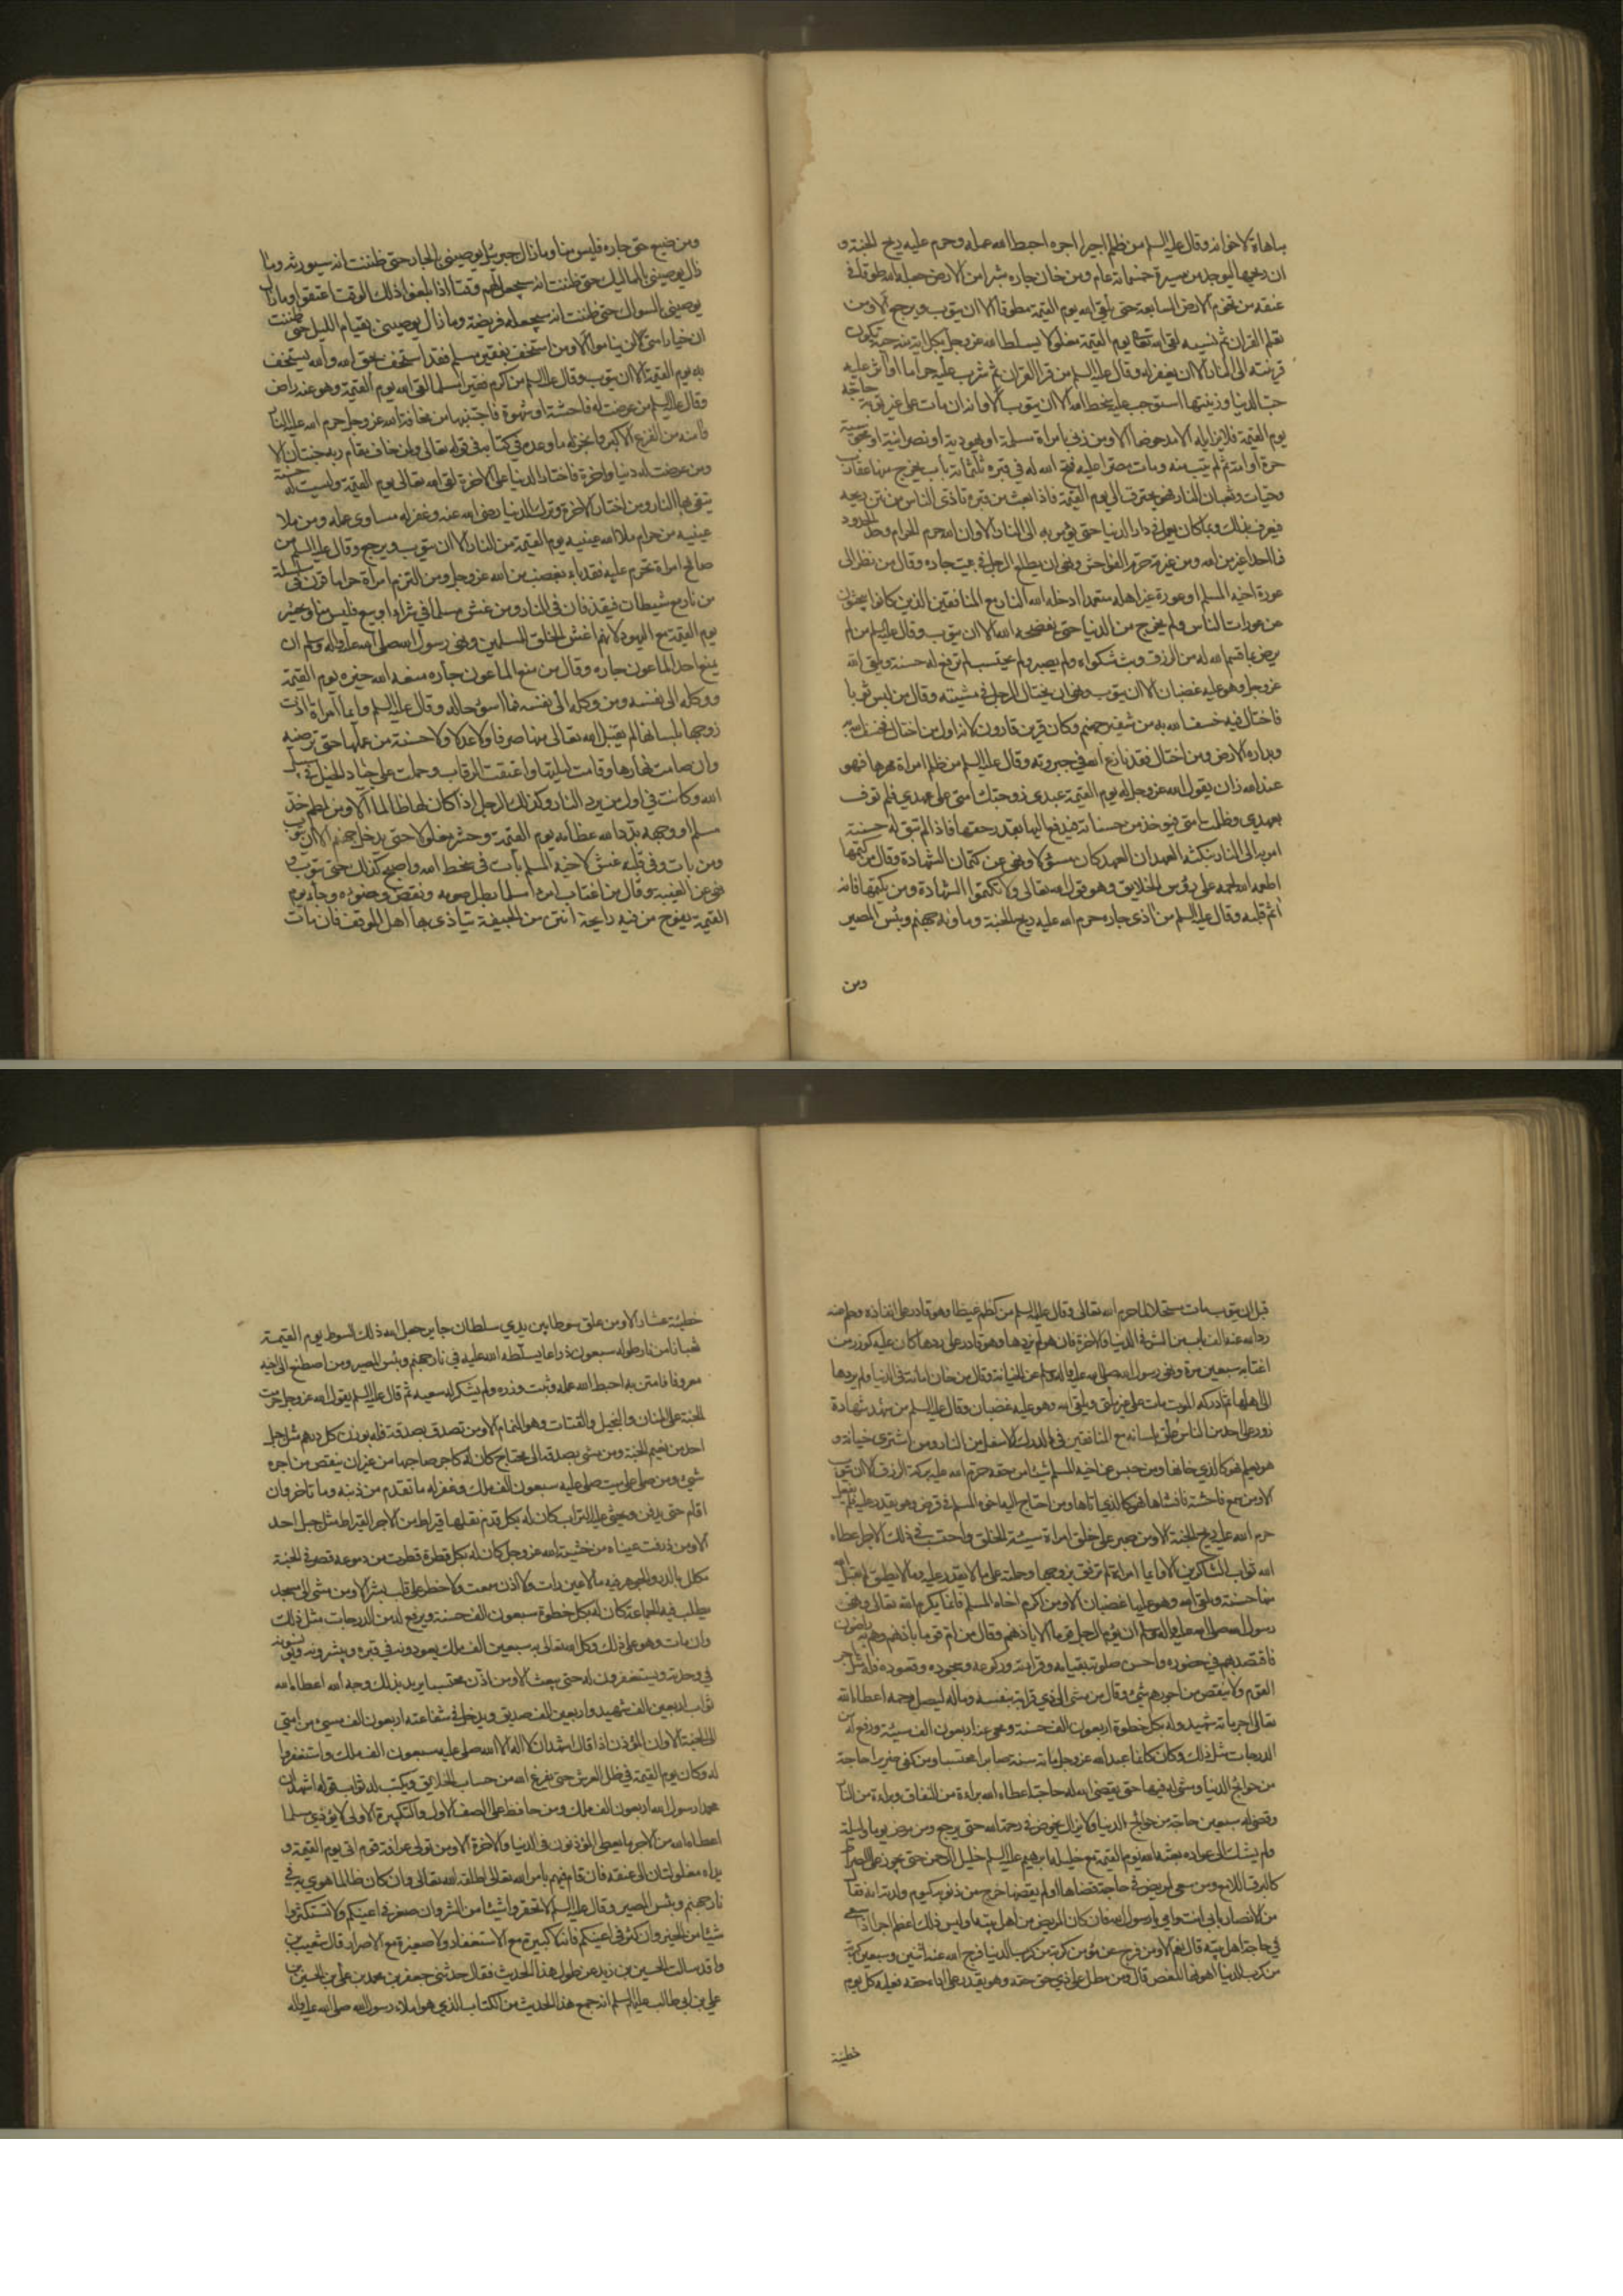 مباهاة لاخوانه وقال عليه السلم من ظلم اجيرا اجره احبط الله عمله وحرم عليه ريح الجنة و
ان ريحها ليوجد من مسيرة خمسمائة عام ومن خان جاره شبرا من الارض جعله الله طوقا في
عنقه من تخوم الارض السابعة حتى يلقى الله يوم القيمة مطوقا الا ان يتوب ويرجع الا ومن
تعلم القران ثم نسيه لقى الله تعالى يوم القيمة مغلولا يسلط الله عز وجل بكل اية منه حية تكون
قرينته الى النار الا ان يغفر له وقال عليه السلم من قرا القران ثم شرب عليه حراما او اثر عليه
حب الدنيا وزينتها استوجب عليه سخط الله الا ان يتوب الا وانه ان مات على غير توبة حاجه
يوم القيمة فلا يزايله الا مدحوضا الا ومن زنى بامراة مسلمة او يهودية او نصرانية او مجوسية
حرة او امة ثم لم يتب منه ومات مصرا عليه فتح الله له في قبره ثلثمائة باب يخرج منها عقارب
وحيات وثعبان النار فهو يحترق الى يوم القيمة فاذا بعث من قبره تاذى الناس من نتن ريحه
فيعرف بذلك وبما كان يعمل في دار الدنيا حتى يؤمر به الى النار الا وان الله حرم الحرام وحد الحدود
فما احد اغير من الله ومن غيرته حرم الفواحش ونهى ان يطلع الرجل في بيت جاره وقال من نظر الى
عورة اخيه المسلم او عورة غير اهله متعمدا ادخله الله النار مع المنافقين الذين كانوا يبحثون
عن عورات الناس ولم يخرج من الدنيا حتى يفضحه الله الا ان يتوب وقال عليه السلم من لم
يرض بما قسم الله له من الرزق وبث شكواه ولم يصبر ولم يحتسب لم ترفع له حسنة ويلقى الله
عز وجل وهو عليه غضبان الا ان يتوب ونهى ان يختال الرجل في مشيته وقال من لبس ثوبا
فاختال فيه خسف الله به من شفير جهنم وكان قرين قارون لانه اول من اختال فخسف الله به
وبداره الارض ومن اختال فقد نازع الله في جبروته وقال عليه السلم من ظلم امراة مهرها فهو
عند الله زان يقول الله عز وجل له يوم القيمة عبدي زوجتك امتى على عهدي فلم توف
بعهدي وظلمت امتى فيؤخذ من حسناته فيدفع اليها بقدر حقها فاذا لم تبق له حسنة
امر به الى النار بنكثه العهد ان العهد كان مسؤلا ونهى عن كتمان الشهادة وقال من كتمها
اطعمه الله لحمه على رؤس الخلايق وهو قول الله تعالى ولا تكتموا الشهادة ومن يكتمها فانه
اثم قلبه وقال عليه السلم من اذى جاره حرم الله عليه ريح الجنة وماويه جهنم وبئس المصير
ومن
ومن ضيع حق جاره فليس منا وما زال جبرئيل يوصينى بالجار حتى ظننت انه سيورثه وما
زال يوصينى بالمماليك حتى ظننت انه سيجعل لهم وقتا اذا بلغوا ذلك الوقت اعتقوا وما زال
يوصينى بالسواك حتى ظننت انه سيجعله فريضة وما زال يوصينى بقيام الليل حتى ظننت
ان خيار امتى لن يناموا الا ومن استخف بفقير مسلم فقد استخف بحق الله والله يستخف
به يوم القيمة الا ان يتوب وقال عليه السلم من اكرم فقيرا مسلما لقى الله يوم القيمة وهو عنه راض
وقال عليه السلم من عرضت له فاحشة او شهوة فاجتنبها من مخافة الله عز وجل حرم الله عليه النار
وامنه من الفزع الاكبر وانجز له ما وعده في كتابه في قوله تعالى ولمن خاف مقام ربه جنتان الا
ومن عرضت له دنيا واخرة فاختار الدنيا على الاخرة لقى الله تعالى يوم القيمة وليست له حسنة
يتقى بها النار ومن اختار الاخرة وترك الدنيا رضى الله عنه وغفر له مساوى عمله ومن ملا
عينيه من حرام ملا الله عينيه يوم القيمة من النار الا ان يتوب ويرجع وقال عليه السلم من
صافح امراة تحرم عليه فقد باء بغضب من الله عز وجل ومن التزم امراة حراما قرن في سلسلة
من نار مع شيطان فيقذفان في النار ومن غش مسلما في شراء او بيع فليس منا ويحشر
يوم القيمة مع اليهود لانهم اغش الخلق للمسلمين ونهى رسول الله صلى الله عليه واله وسلم ان
يمنع احد الماعون جاره وقال من منع الماعون جاره منعه الله خيره يوم القيمة
ووكله الى نفسه ومن وكله الى نفسه فما اسوء حاله وقال عليه السلم وايما امراة اذت
زوجها بلسانها لم يقبل الله تعالى منها صرفا ولا عدلا ولا حسنة من عملها حتى ترضيه
وان صامت نهارها وقامت ليلتها واعتقت الرقاب وحملت على جياد الخيل في سبيل
الله وكانت في اول من يرد النار وكذلك الرجل اذا كان لها ظالما الا ومن لطم خد
مسلم او وجهه بدد الله عظامه يوم القيمة وحشر مغلولا حتى يدخل جهنم الا ان يتوب
ومن بات وفي قلبه غش لاخيه المسلم بات في سخط الله واصبح كذلك حتى يتوب و
نهى عن الغيبة وقال من اغتاب امرء مسلما بطل صومه ونقض وضوءه وجاء يوم
القيمة يفوح من فيه رايحة انتن من الجيفة يتاذى بها اهل الموقف فان مات
قبل ان يتوب مات مستحلا لما حرم الله تعالى وقال عليه السلم من كظم غيظا وهو قادر على انفاذه وحلم عنه
اغتابه سبعين مرة ونهى رسول الله صلى الله عليه واله وسلم عن الخيانة وقال من خان امانة في الدنيا ولم يردها
الى اهلها ثم ادركه الموت مات على غير ملتى ويلقى الله وهو عليه غضبان وقال عليه السلم من شهد شهادة
زور على احد من الناس علق بلسانه مع المنافقين في الدرك الاسفل من النار ومن اشترى خيانة و
هو يعلم فهو كالذي خانها ومن حبس عن اخيه المسلم شيئا من حقه حرم الله عليه بركة الرزق الا ان يتوب
الا ومن سمع فاحشة فافشاها فهو كالذي اتاها ومن احتاج اليه اخوه المسلم في قرض وهو يقدر عليه فلم يفعل
حرم الله عليه ريح الجنة الا ومن صبر على خلق امراة سيئة الخلق واحتسب في ذلك الاجر اعطاه
الله ثواب الشاكرين الا وايما امراة لم ترفق بزوجها وحملته على ما لا يقدر عليه وما لا يطيق لم يقبل الله
منها حسنة وتلقى الله وهو عليها غضبان الا ومن اكرم اخاه المسلم فانما يكرم الله تعالى ونهى
رسول الله صلى الله عليه واله وسلم ان يؤم الرجل قوما الا باذنهم وقال من ام قوما باذنهم وهم به راضون
فاقتصد بهم في حضوره واحسن صلوته بقيامه وقراءته وركوعه وسجوده وقعوده فله مثل اجر
القوم ولا ينقص من اجورهم شئ وقال من مشى الى ذي قرابة بنفسه وماله ليصل رحمه اعطاه الله
تعالى اجر مائة شهيد وله بكل خطوة اربعون الف حسنة ومحى عنه اربعون الف سيئة ورفع له من
الدرجات مثل ذلك وكان كانما عبد الله عز وجل مائة سنة صابرا محتسبا ومن كفى ضريرا حاجة
من حوائج الدنيا ومشى له فيها حتى يقضى الله له حاجته اعطاه الله براءة من النفاق وبراءة من النار
وقضى له سبعين حاجة من حوائج الدنيا ولا يزال يخوض في رحمة الله حتى يرجع ومن مرض يوما وليلة
ولم يشك الى عواده بعثه الله يوم القيمة مع خليله ابرهيم عليه السلم خليل الرحمن حتى يجوز على الصراط
كالبرق اللامع ومن سعى لمريض في حاجة قضاها او لم يقضها خرج من ذنوبه كيوم ولدته امه فقال
من الانصار بابي انت وامي يا رسول الله فان كان المريض من اهل بيته اوليس ذلك اعظم اجرا اذا سعى
في حاجة اهل بيته قال نعم الا ومن فرج عن مؤمن كربة من كرب الدنيا فرج الله عنه اثنين وسبعين كربة
من كرب الدنيا اهونها المغص قال ومن مطل على ذي حق حقه وهو يقدر على اداء حقه فعليه كل يوم
خطيئة
خطيئة عشار الا ومن علق سوطا بين يدي سلطان جاير جعل الله ذلك السوط يوم القيمة
ثعبانا من نار طوله سبعون ذراعا يسلطه الله عليه في نار جهنم وبئس المصير ومن اصطنع الى اخيه
معروفا فامتن به احبط الله عمله وثبت وزره ولم يشكر له سعيه ثم قال عليه السلم يقول الله عز وجل حرمت
الجنة على المنان والبخيل والقتات وهو النمام الا ومن تصدق بصدقة فله بوزن كل درهم مثل جبل
احد من نعيم الجنة ومن مشى بصدقة الى محتاج كان له كاجر صاحبها من غير ان ينقص من اجره
شيء ومن صلى على ميت صلى عليه سبعون الف ملك وغفر له ما تقدم من ذنبه وما تاخر فان
اقام حتى يدفن ويحثى عليه التراب كان له بكل قدم نقلها قيراط من الاجر القيراط مثل جبل احد
الا ومن ذرفت عيناه من خشية الله عز وجل كان له بكل قطرة قطرت من دموعه قصر في الجنة
مكلل بالدر والجوهر فيه ما لا عين رات ولا اذن سمعت ولا خطر على قلب بشر الا ومن مشى الى مسجد
يطلب فيه الجماعة كان له بكل خطوة سبعون الف حسنة ويرفع له من الدرجات مثل ذلك
وان مات وهو على ذلك وكل الله تعالى به سبعين الف ملك يعودونه في قبره ويبشرونه ويؤنسونه
في وحدته ويستغفرون له حتى يبعث الا ومن اذن محتسبا يريد بذلك وجه الله اعطاه الله
ثواب اربعين الف شهيد واربعين الف صديق ويدخل في شفاعته اربعون الف مسيء من امتى
الى الجنة الا وان المؤذن اذا قال اشهد ان لا اله الا الله صلى عليه سبعون الف ملك واستغفروا
له وكان يوم القيمة في ظل العرش حتى يفرغ الله من حساب الخلايق ويكتب له ثواب قوله اشهد ان
محمدا رسول الله اربعون الف ملك ومن حافظ على الصف الاول والتكبيرة الاولى لا يؤذي مسلما
اعطاه الله من الاجر ما يعطى المؤذنون في الدنيا والاخرة الا ومن تولى عرافة قوم اتى يوم القيمة و
يداه مغلولتان الى عنقه فان قام فيهم بامر الله تعالى اطلقه الله تعالى وان كان ظالما هوى به في
نار جهنم وبئس المصير وقال عليه السلم لا تحقروا شيئا من الشر وان صغر في اعينكم ولا تستكثروا
شيئا من الخير وان كثر في اعينكم فانه لا كبيرة مع الاستغفار ولا صغيرة مع الاصرار قال شعيب بن
واقد سالت الحسين بن زيد عن طول هذا الحديث فقال حدثنى جعفر بن محمد بن علي بن الحسين بن
علي بن ابي طالب عليهم السلم انه جمع هذا الحديث من الكتاب الذي هو املاء رسول الله صلى الله عليه واله